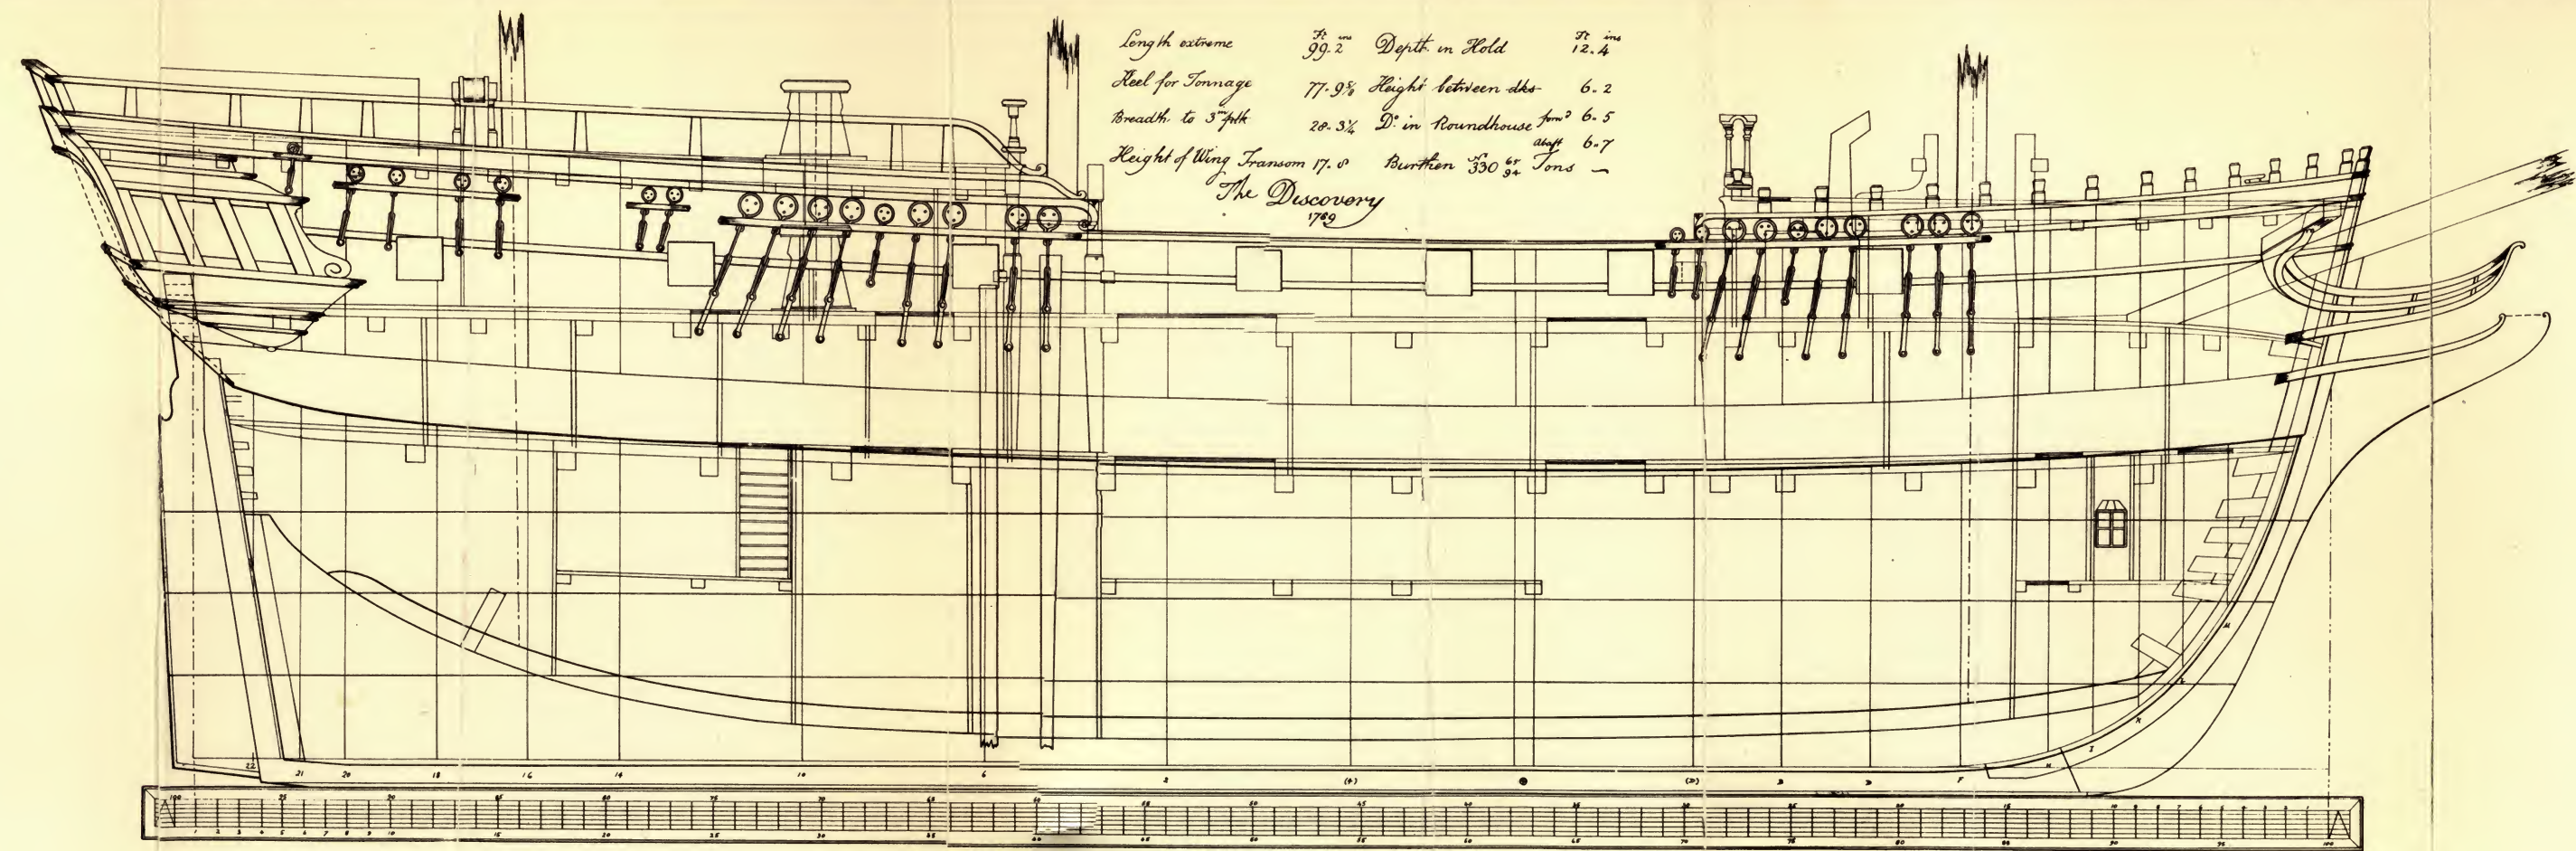 Length extreme Ft ins 99.2 Depth in Hold Ft ins 12.4
Keel for Tonnage 77.9 5/8 Height between dks 6.2
Breadth to 3 in plk 28.3 1/4 Do in Roundhouse forwd 6.5
abaft 6.7
Height of Wing Transom 17.8 Burthen No 330 65/94 Tons —
The Discovery
1789
22 21 20 18 16 14 10 6 2 (4) ⊕ (D) B D F H I K L M
100 95 90 85 80 75 70 65 60 55 50 45 40 35 30 25 20 15 10 9 8 7 6 5 4 3 2 1
1 2 3 4 5 6 7 8 9 10 15 20 25 30 35 40 45 50 55 60 65 70 75 80 85 90 95 100